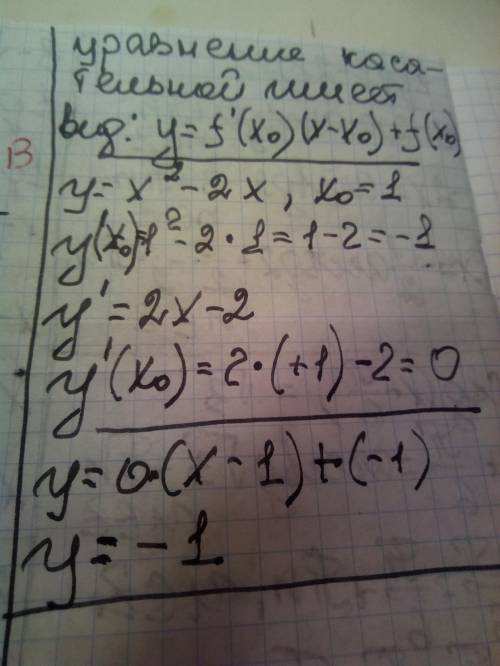 уравнение каса-
тельной имеет
вид: y = f'(x₀)(x-x₀)+f(x₀)
В
y = x² - 2x , x₀ = 1
y(x₀)=1² - 2 · 1 = 1 - 2 = -1
y' = 2x - 2
y'(x₀) = 2·(+1) - 2 = 0
y = 0·(x - 1) + (-1)
y = - 1